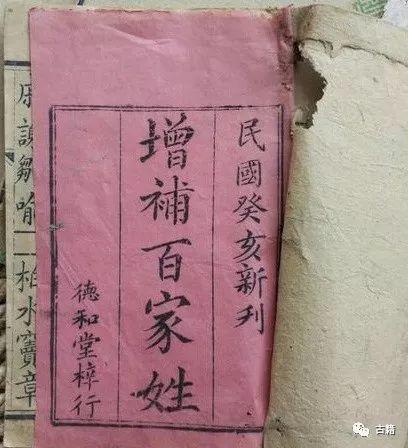 民國癸亥新刊
增補百家姓
德和堂梓行
戚謝鄒喻
柏水竇章
古籍